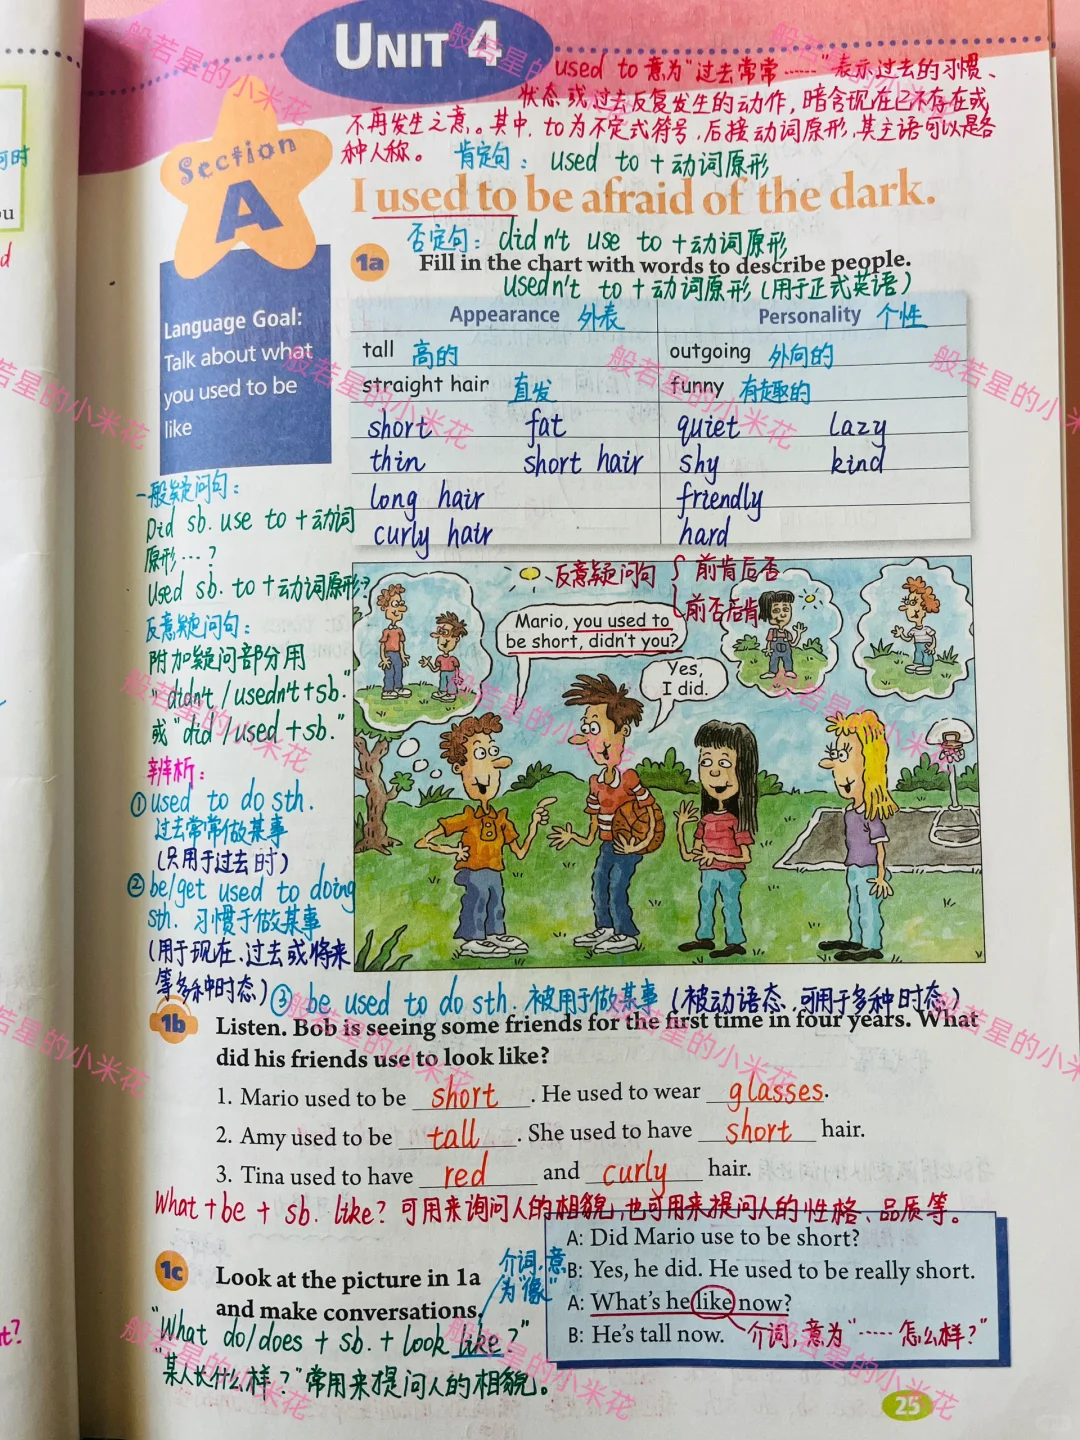 UNIT 4
used to意为"过去常常……"表示过去的习惯、
状态或过去反复发生的动作，暗含现在已不存在或
不再发生之意。其中，to为不定式符号，后接动词原形，其主语可以是各
种人称。 肯定句：used to +动词原形
Section
A
I used to be afraid of the dark.
否定句：didn't use to +动词原形
1a Fill in the chart with words to describe people.
usedn't to +动词原形（用于正式英语）
Language Goal:
Talk about what
you used to be
like
Appearance 外表 Personality 个性
tall 高的 outgoing 外向的
straight hair 直发 funny 有趣的
short fat quiet lazy
thin short hair shy kind
long hair friendly
curly hair hard
一般疑问句：
Did sb. use to +动词
原形…?
Used sb. to +动词原形?
反意疑问句：
附加疑问部分用
"didn't / usedn't+sb."
或"did / used +sb."
辨析：
①used to do sth.
过去常常做某事
(只用于过去时)
②be/get used to doing
sth. 习惯于做某事
(用于现在、过去或将来
等多种时态)
③be used to do sth. 被用于做某事 (被动语态，可用于多种时态)
反意疑问句 { 前肯后否
前否后肯
Mario, you used to
be short, didn't you?
Yes,
I did.
1b Listen. Bob is seeing some friends for the first time in four years. What
did his friends use to look like?
1. Mario used to be short. He used to wear glasses.
2. Amy used to be tall. She used to have short hair.
3. Tina used to have red and curly hair.
What +be + sb. like? 可用来询问人的相貌，也可用来提问人的性格、品质等。
1c Look at the picture in 1a
and make conversations.
介词，意
为"像"
"What do/does + sb. + look like?"
"某人长什么样？"常用来提问人的相貌。
A: Did Mario use to be short?
B: Yes, he did. He used to be really short.
A: What's he like now?
B: He's tall now.
介词，意为"……怎么样?"
25
般若星的小米花